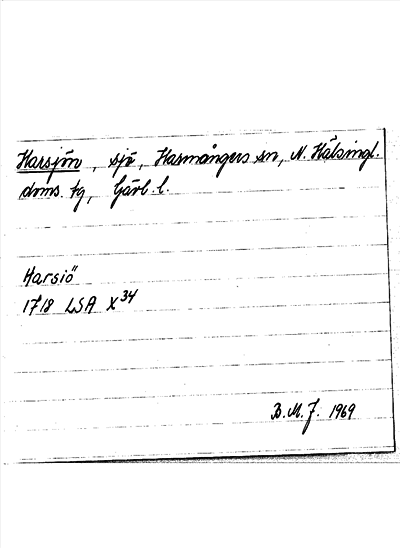 Harsjön, sjö, Harmångers sn, N. Hälsingl.
doms. tg, Gävl. l.
Harsiö
1718 LSA X 34
B.M.J. 1969